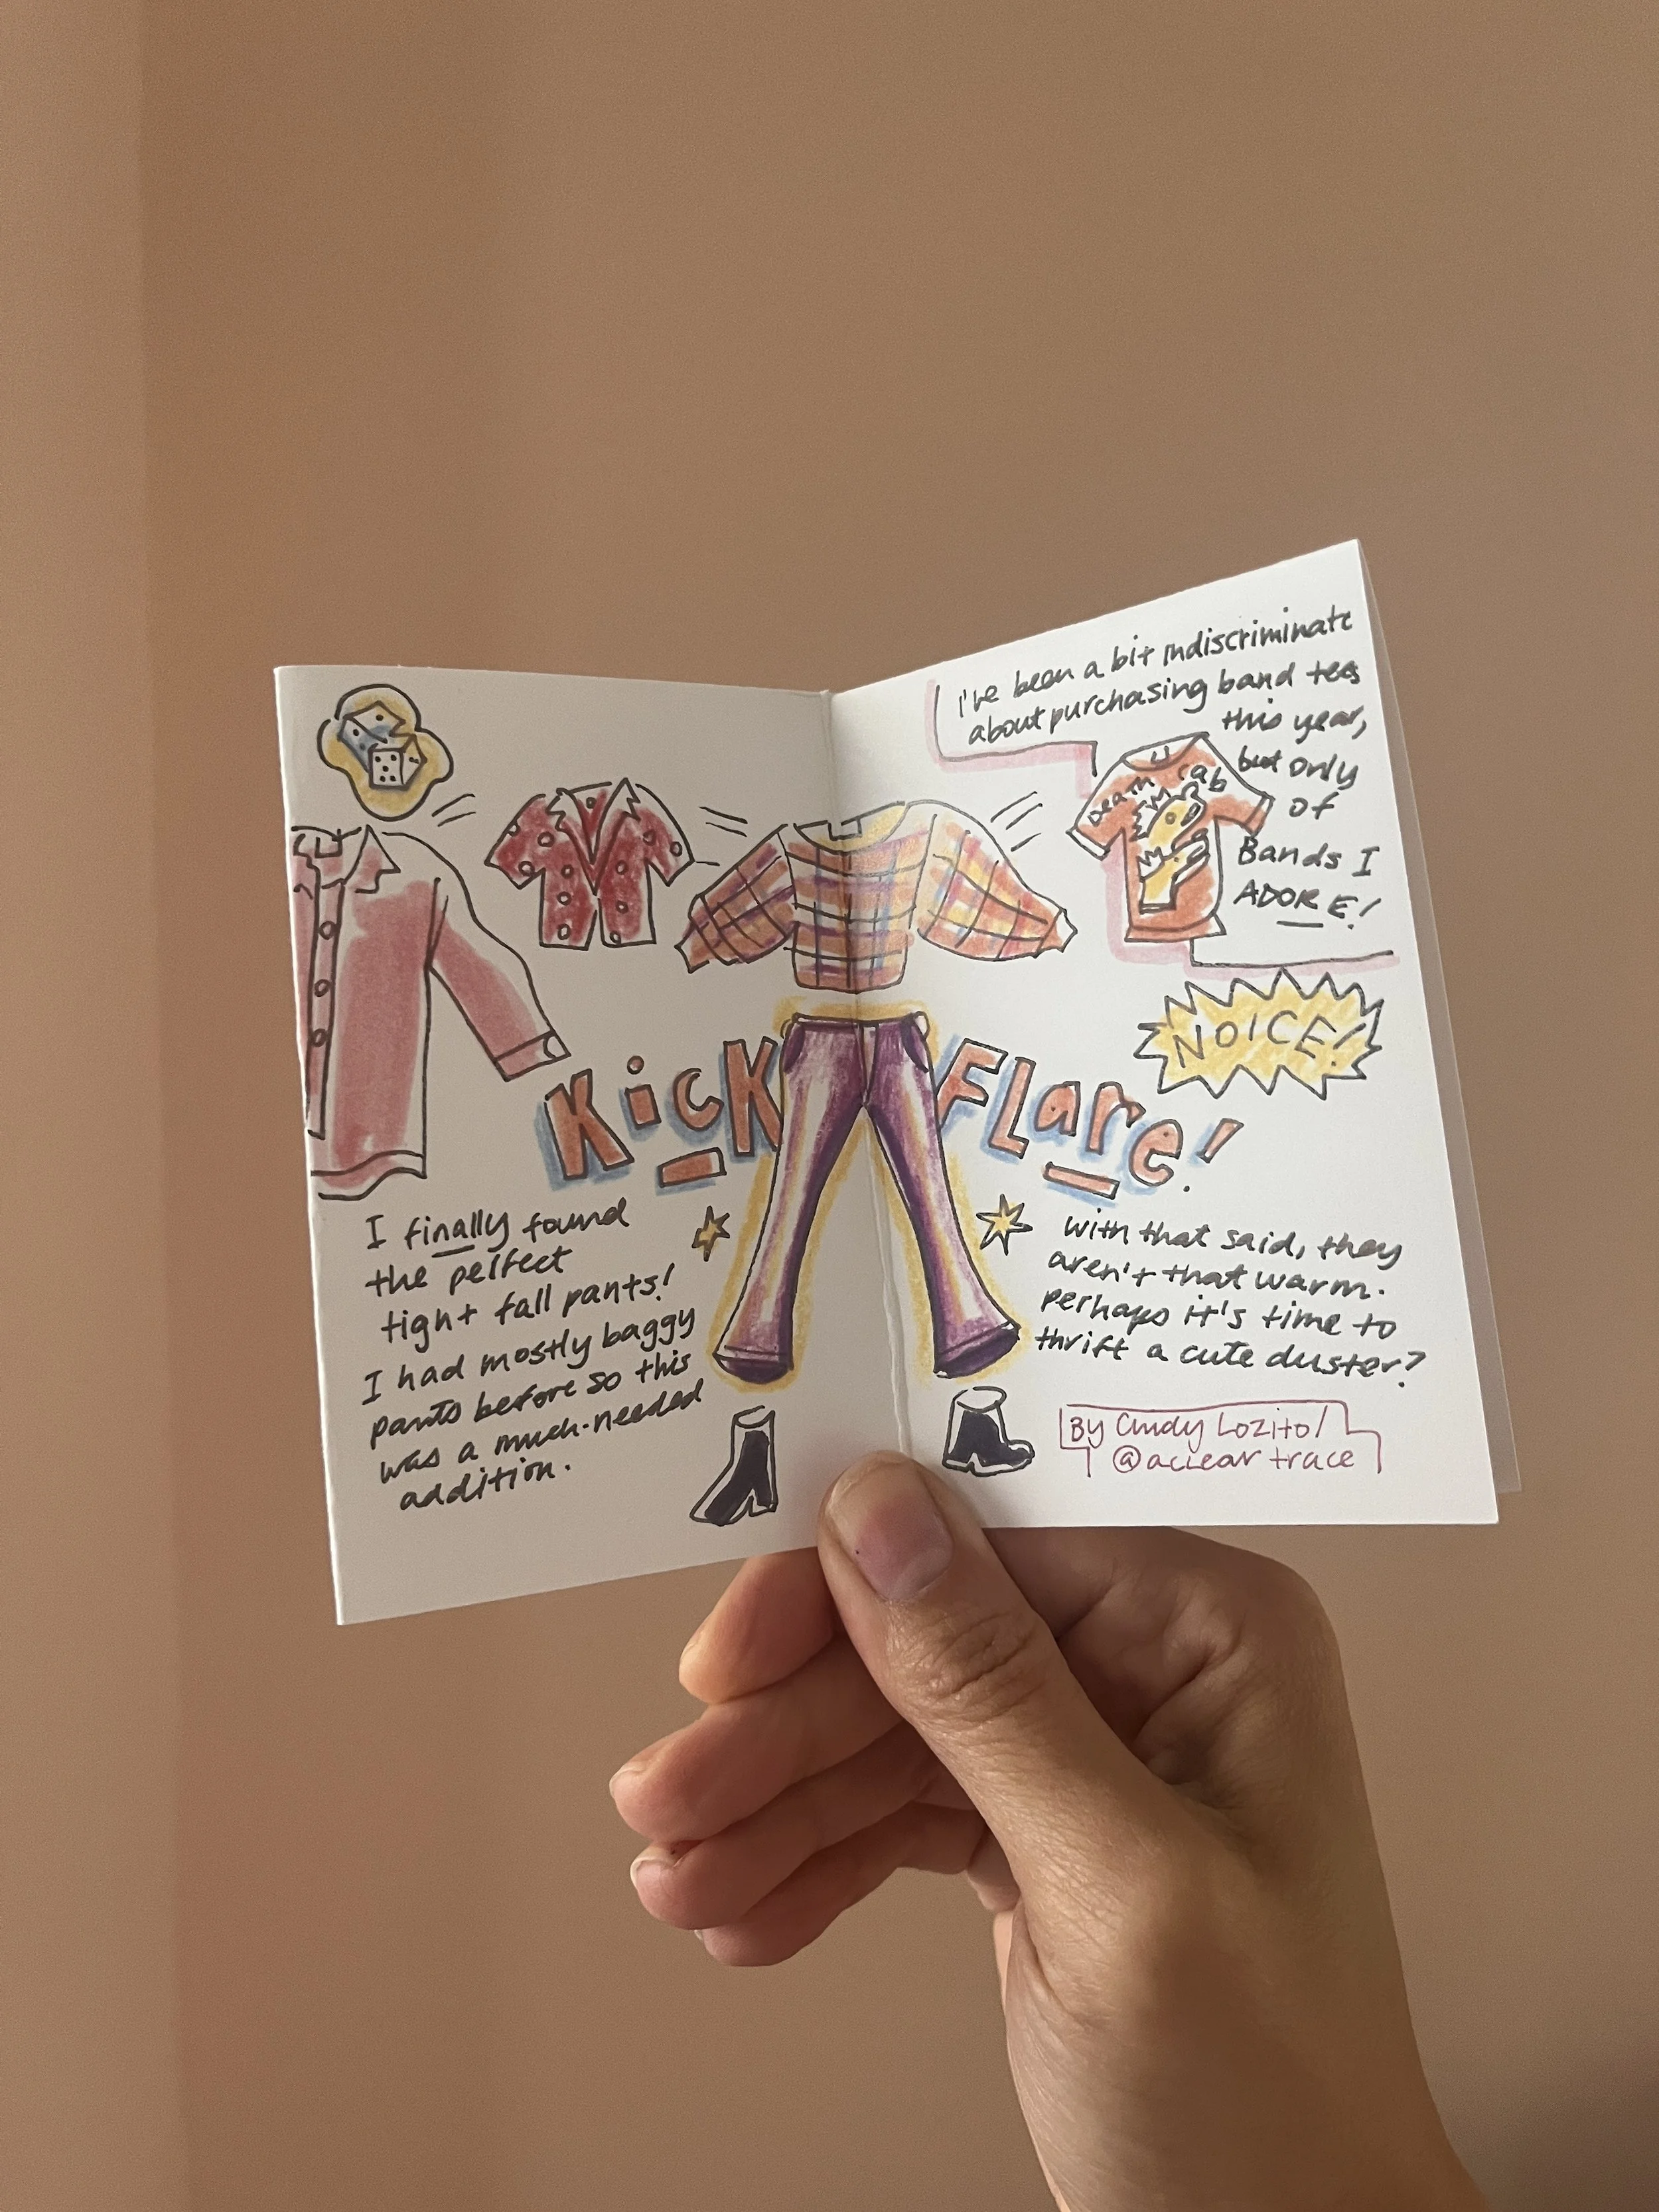 I've been a bit indiscriminate
about purchasing band tees
this year,
but only
of
Bands I
ADORE!
Death Cab
NOICE!
Kick Flare!
I finally found
the perfect
tight fall pants!
I had mostly baggy
pants before so this
was a much-needed
addition.
with that said, they
aren't that warm.
perhaps it's time to
thrift a cute duster?
By Cindy Lozito/
@acleartrace